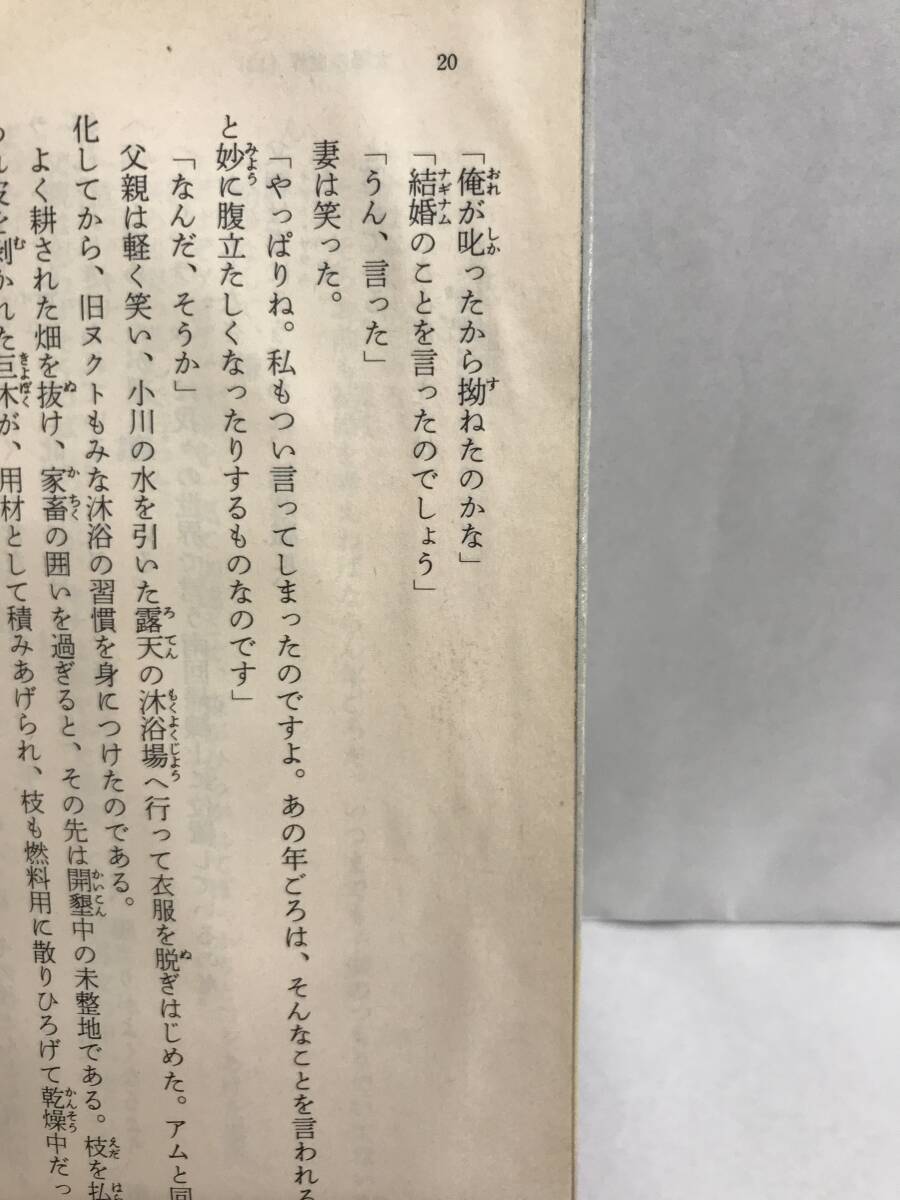 20
「俺が叱ったから拗ねたのかな」
「結婚のことを言ったのでしょう」
「うん、言った」
妻は笑った。
「やっぱりね。私もつい言ってしまったのですよ。あの年ごろは、そんなことを言われる
と妙に腹立たしくなったりするものなのです」
「なんだ、そうか」
父親は軽く笑い、小川の水を引いた露天の沐浴場へ行って衣服を脱ぎはじめた。アムと同
化してから、旧ヌクトもみな沐浴の習慣を身につけたのである。
よく耕された畑を抜け、家畜の囲いを過ぎると、その先は開墾中の未整地である。枝を払
われ皮を剝かれた巨木が、用材として積みあげられ、枝も燃料用に散りひろげて乾燥中だっ